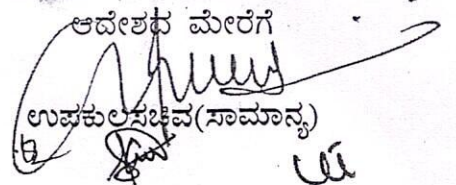 ಆದೇಶದ ಮೇರೆಗೆ
ಉಪಕುಲಸಚಿವ(ಸಾಮಾನ್ಯ)